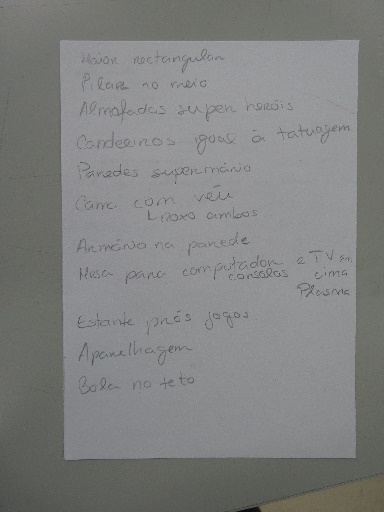 Maior rectangular
Pilar no meio
Almofadas super heróis
Candeeiros igual à tatuagem
Paredes supermário
Cama com véu
roxo ambos
Armário na parede
Mesa para computador e TV em
consolas cima
Plasma
Estante prós jogos
Aparelhagem
Bola no teto